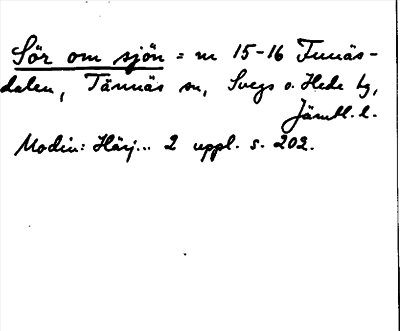 Sör om sjön = nr 15-16 Funäs-
dalen, Tännäs sn, Svegs o. Hede tg,
Jämtl. l.
Modin: Härj... 2 uppl. s. 202.